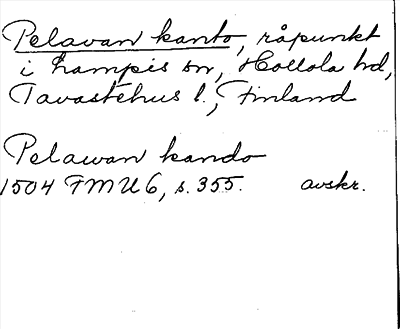 Pelavan kanto, råpunkt
i Lampis sn, Hollola hd,
Tavastehus l., Finland
Pelawan kando
1504 FMU 6, s. 355. avskr.